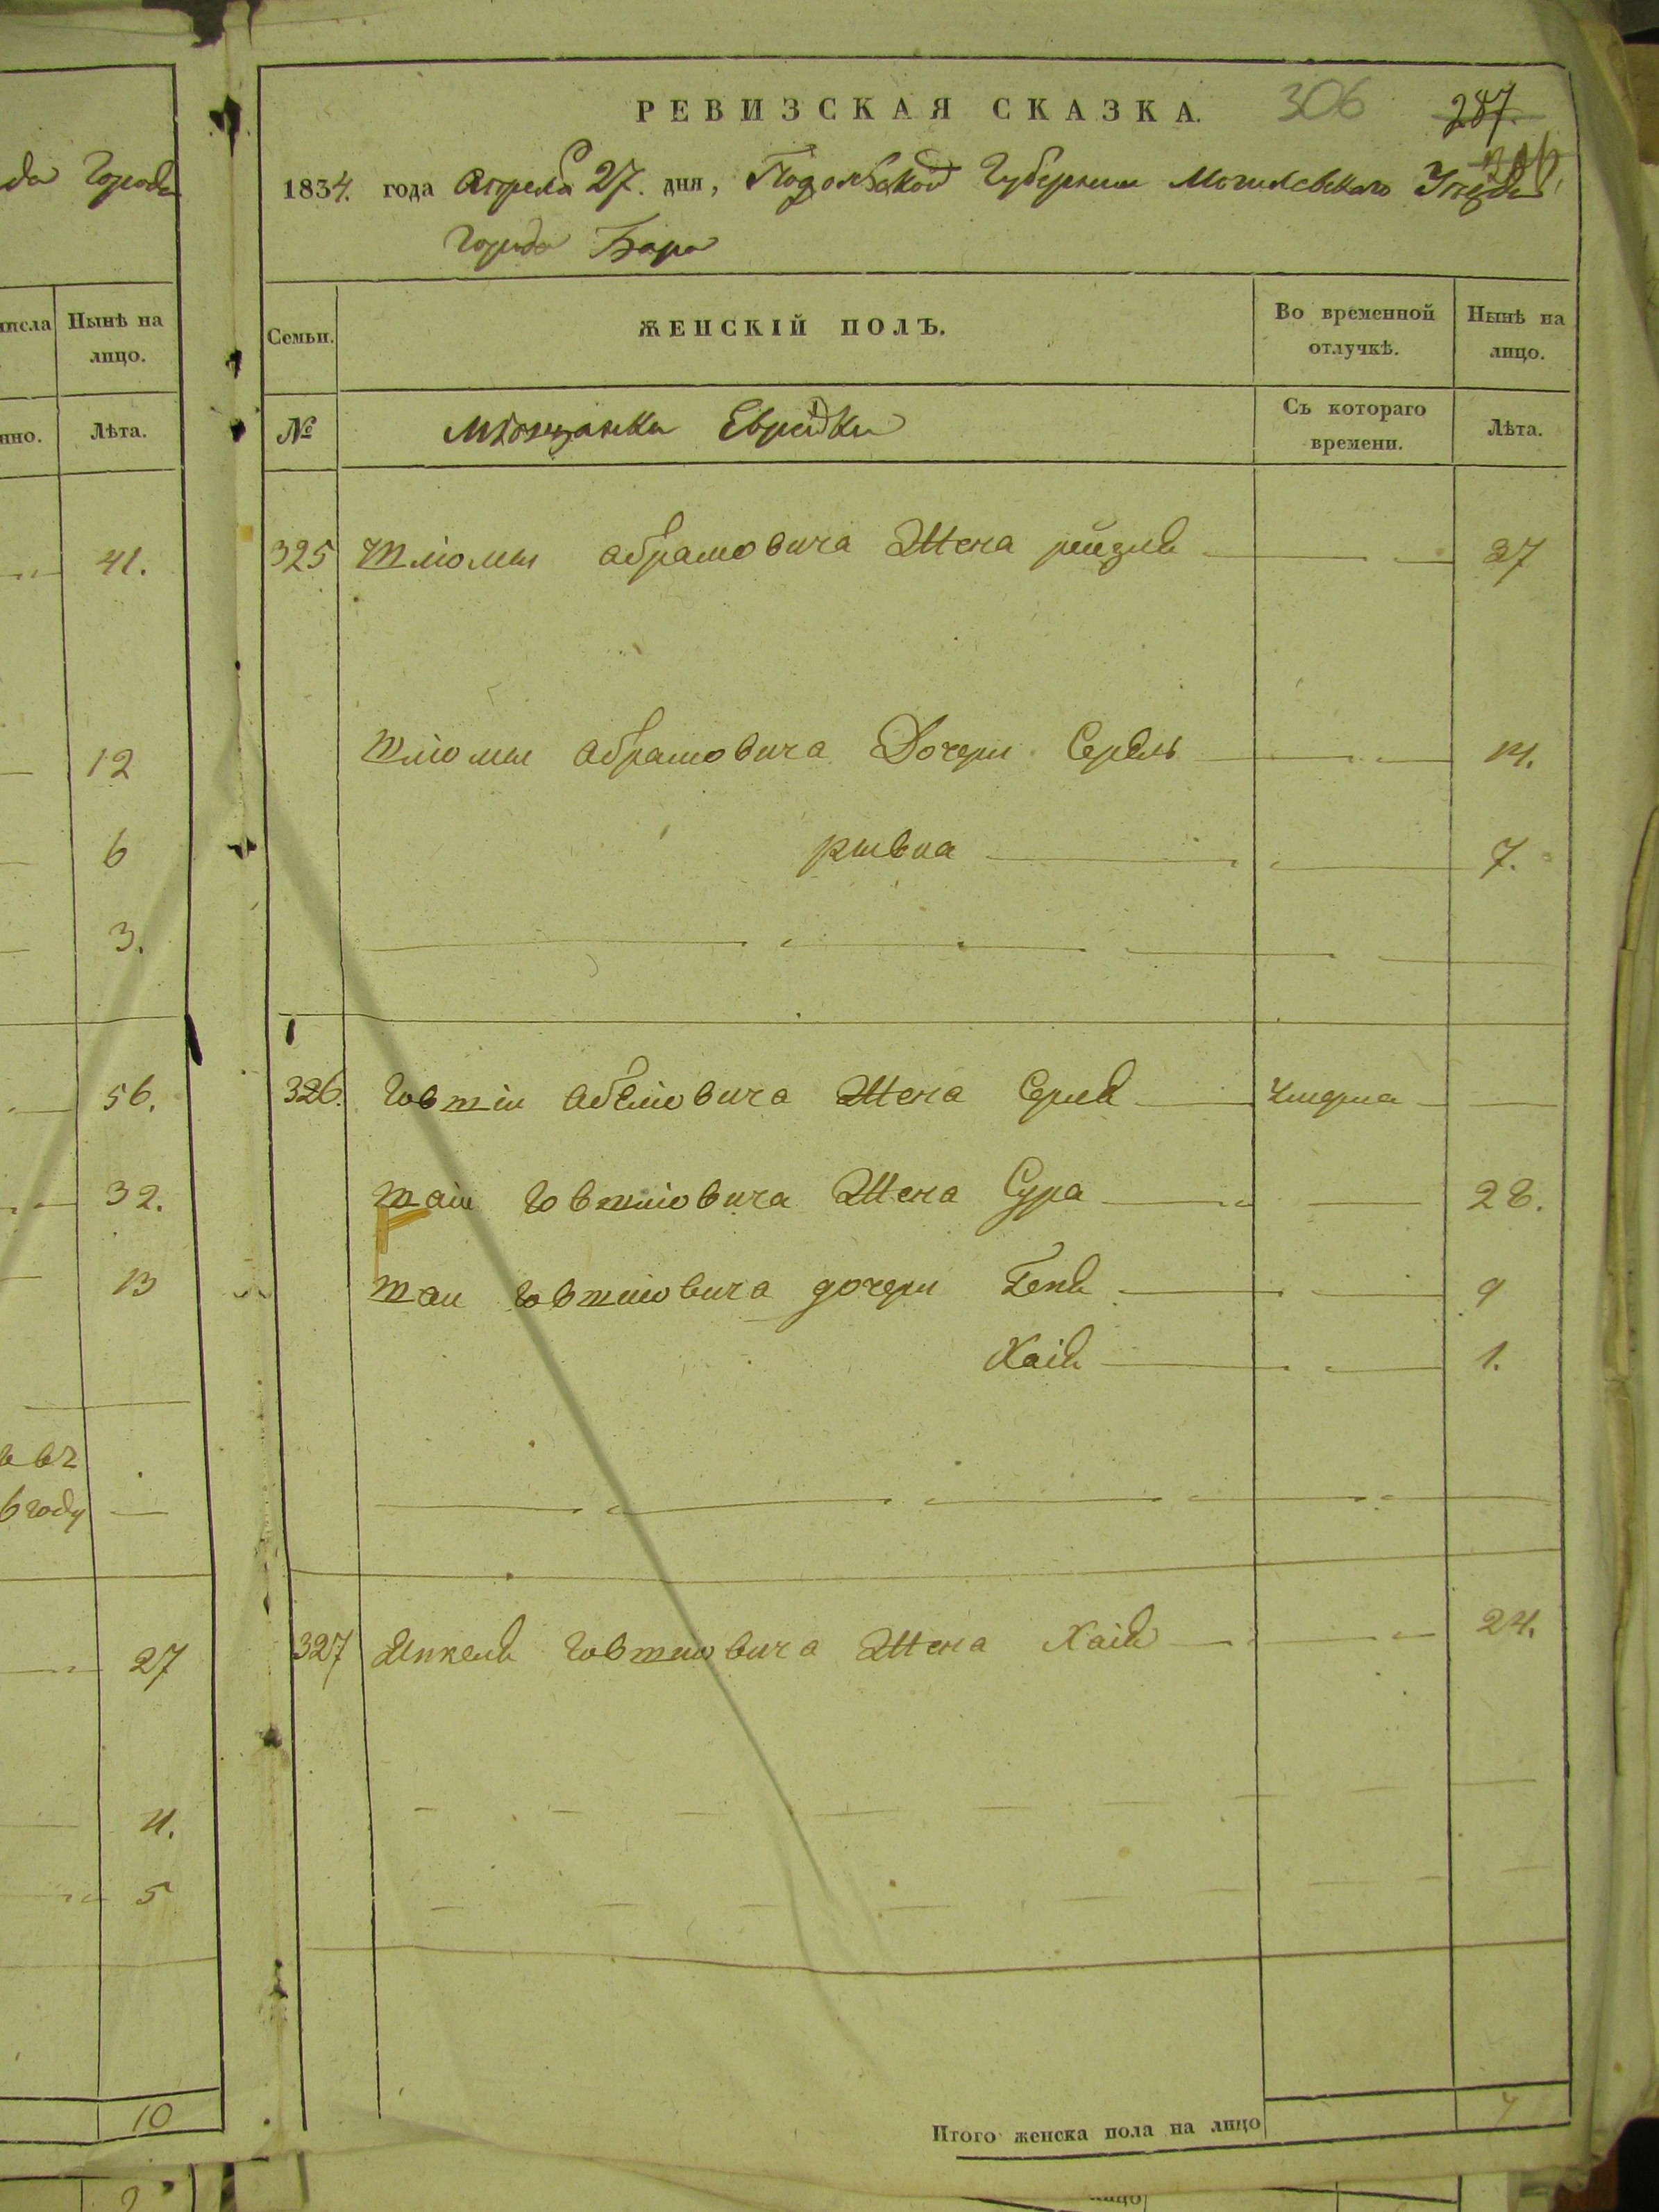 да Города
РЕВИЗСКАЯ СКАЗКА. 306 287.
1834. года Апреля 27. дня, Подольской Губернии Могилевского Уезда
Города Бара
числа Нынѣ на лицо.
Семьи. ЖЕНСКІЙ ПОЛЪ. Во временной отлучкѣ. Нынѣ на лицо.
нно. Лѣта.
№ Мѣщанки Еврейки Съ котораго времени. Лѣта.
41.
325 Шліомы Абрамовича Жена рейзля 37
12
Шліомы Абрамовича Дочери Серель 14.
6
ривка 7.
3.
56.
326. Іовшіи Жена Серля Умерла
32.
Шаи Іовшіовича Жена Сура 28.
13
Шаи Іовшіовича дочери Геня 9
Хаія 1.
въ
6 году
327 Іовшіовича Жена Хаія 24.
27
4.
5
10
Итого женска пола на лицо 7